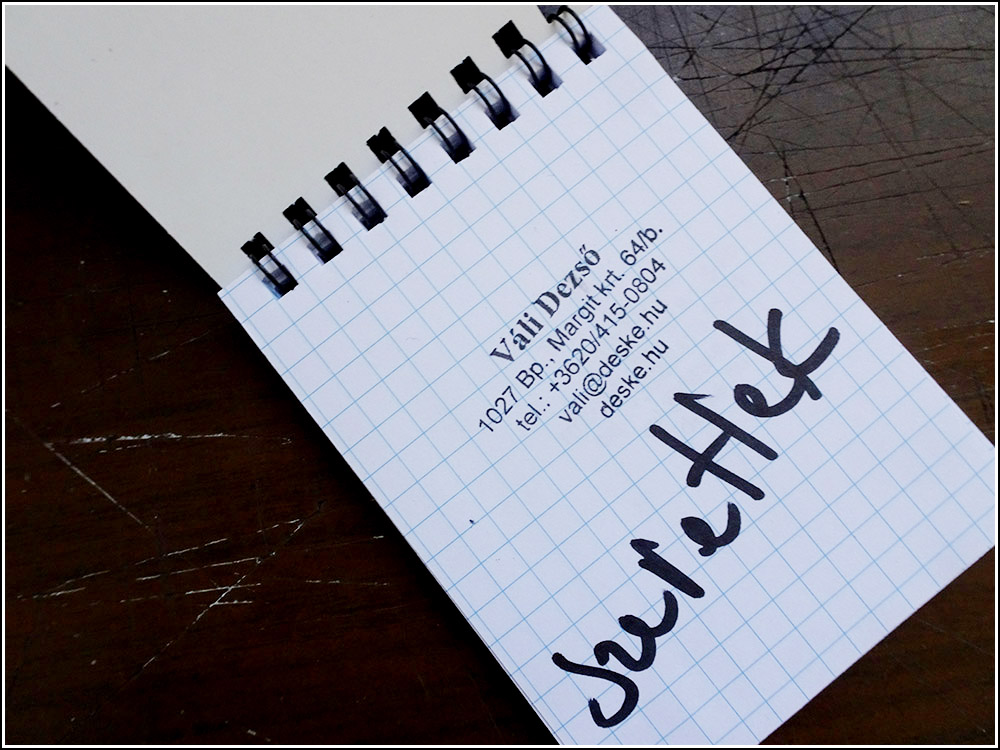 Váli Dezső
1027 Bp., Margit krt. 64/b.
tel.: +3620/415-0804
vali@deske.hu
deske.hu
szerettek